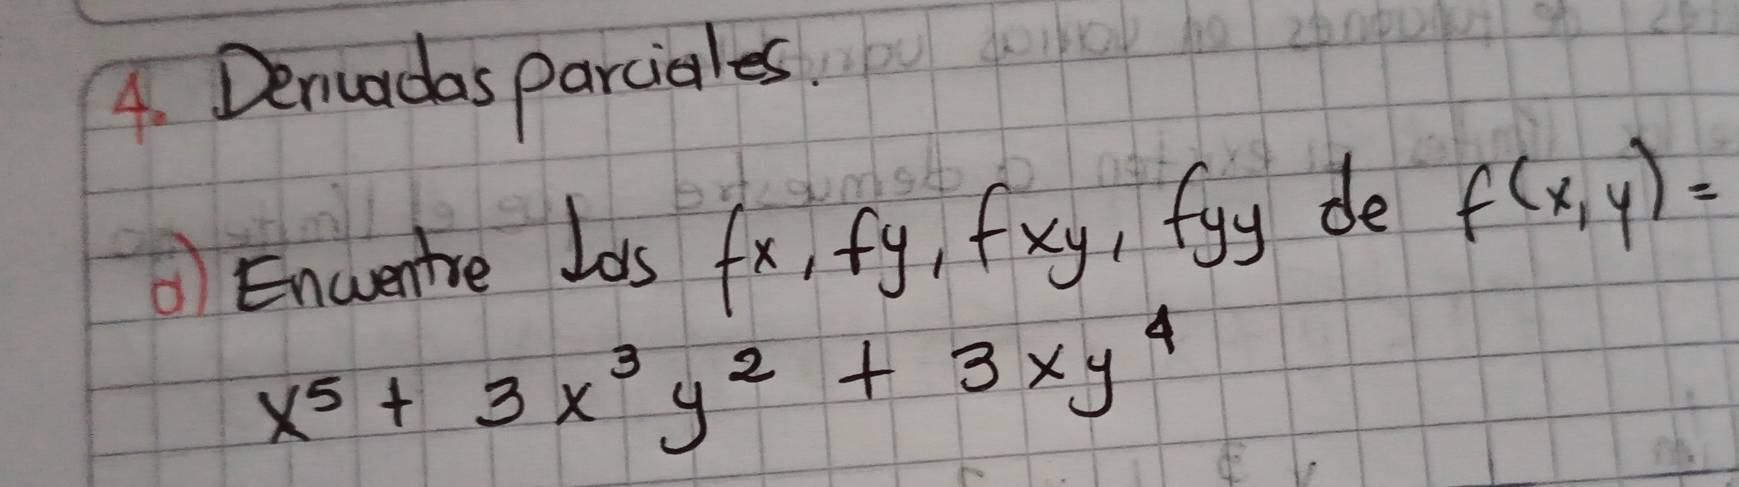 4. Derivadas parciales.
a) Encuentre las fx, fy, fxy, fyy de f(x,y) =
x⁵ + 3x³y² + 3xy⁴